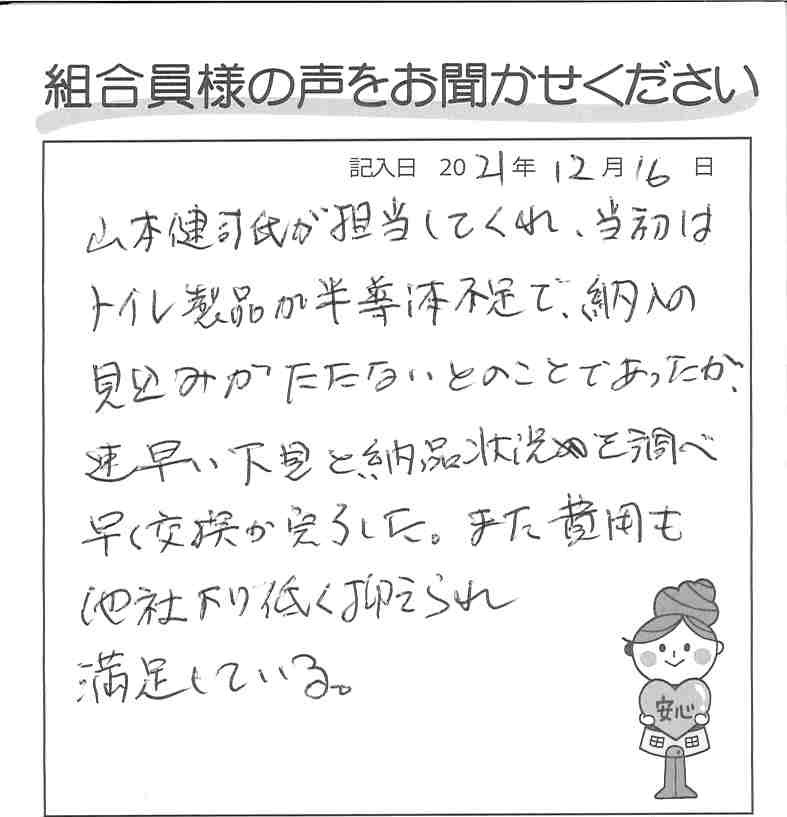 組合員様の声をお聞かせください
記入日 2021年12月16日
山本健司氏が担当してくれ、当初は
トイレ製品が半導体不足で、納入の
見込みがたたないとのことであったが、
速早い下見と納品状況を調べ
早く交換が完了した。また費用も
他社下り低く抑えられ
満足している。
安心